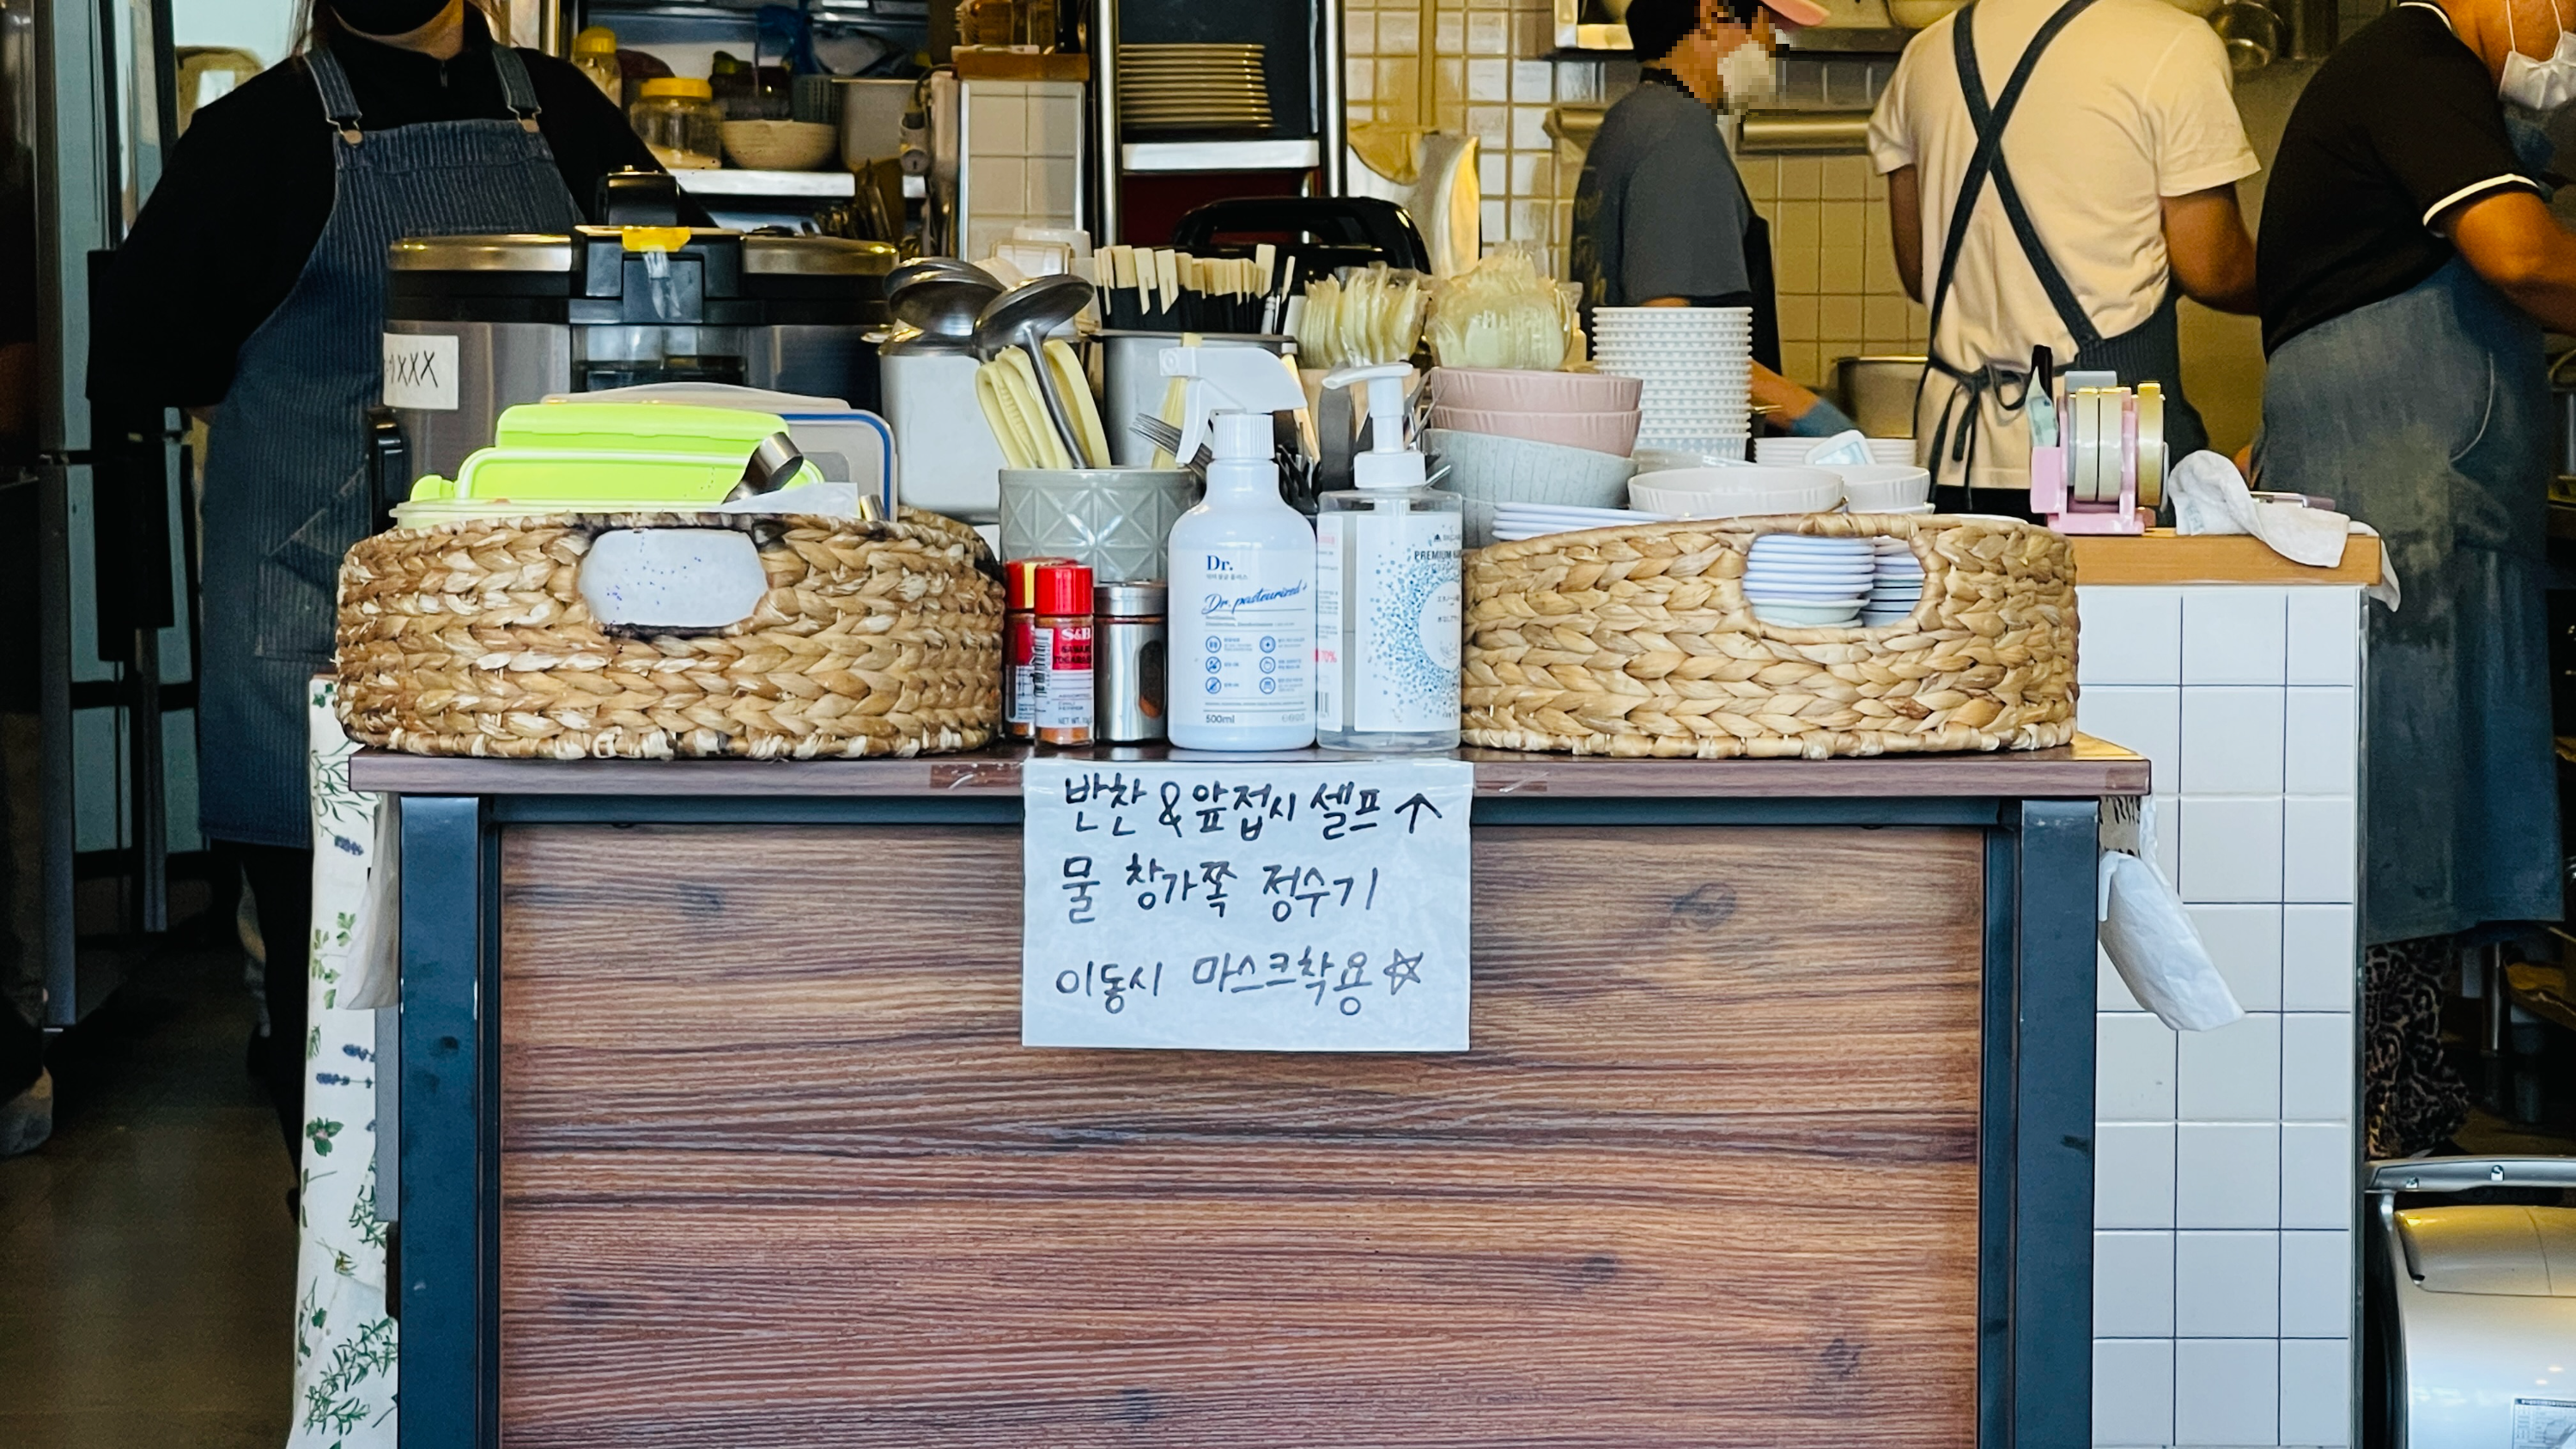 XXX
Dr.
Dr. pasteurized+
500ml
S&B
NET WT.
PREMIUM
70%
반찬 & 앞접시 셀프 ↑
물 창가쪽 정수기
이동시 마스크착용 ☆